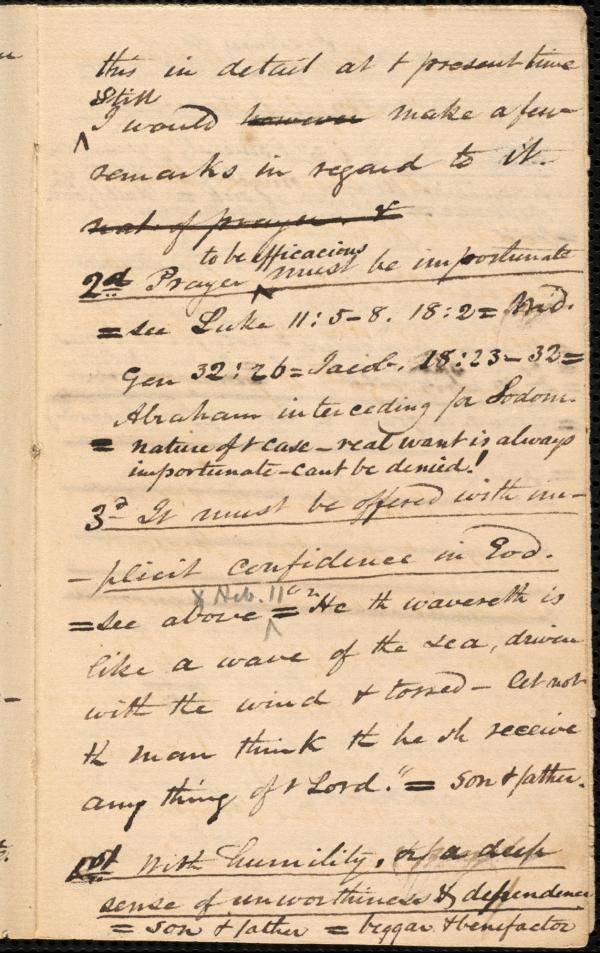 this in detail at t present time
Still
I would however make a few
remarks in regard to it.
nat. of prayer. &
to be efficacious
2d Prayer must be importunate
= see Luke 11:5-8. 18:2 = Wid.
Gen 32:26 = Jacob. 18:23-32 =
Abraham interceding for Sodom.
= nature of t case - real want is always
importunate - cant be denied!
3d It must be offered with im-
-plicit confidence in God.
& Heb. 11
= see above = "He th wavereth is
like a wave of the sea, driven
with the wind & tossed - let not
th man think th he sh receive
any thing of t Lord." = son & father.
With humility, & a deep
sense of unworthiness & dependence
= son & father = beggar & benefactor